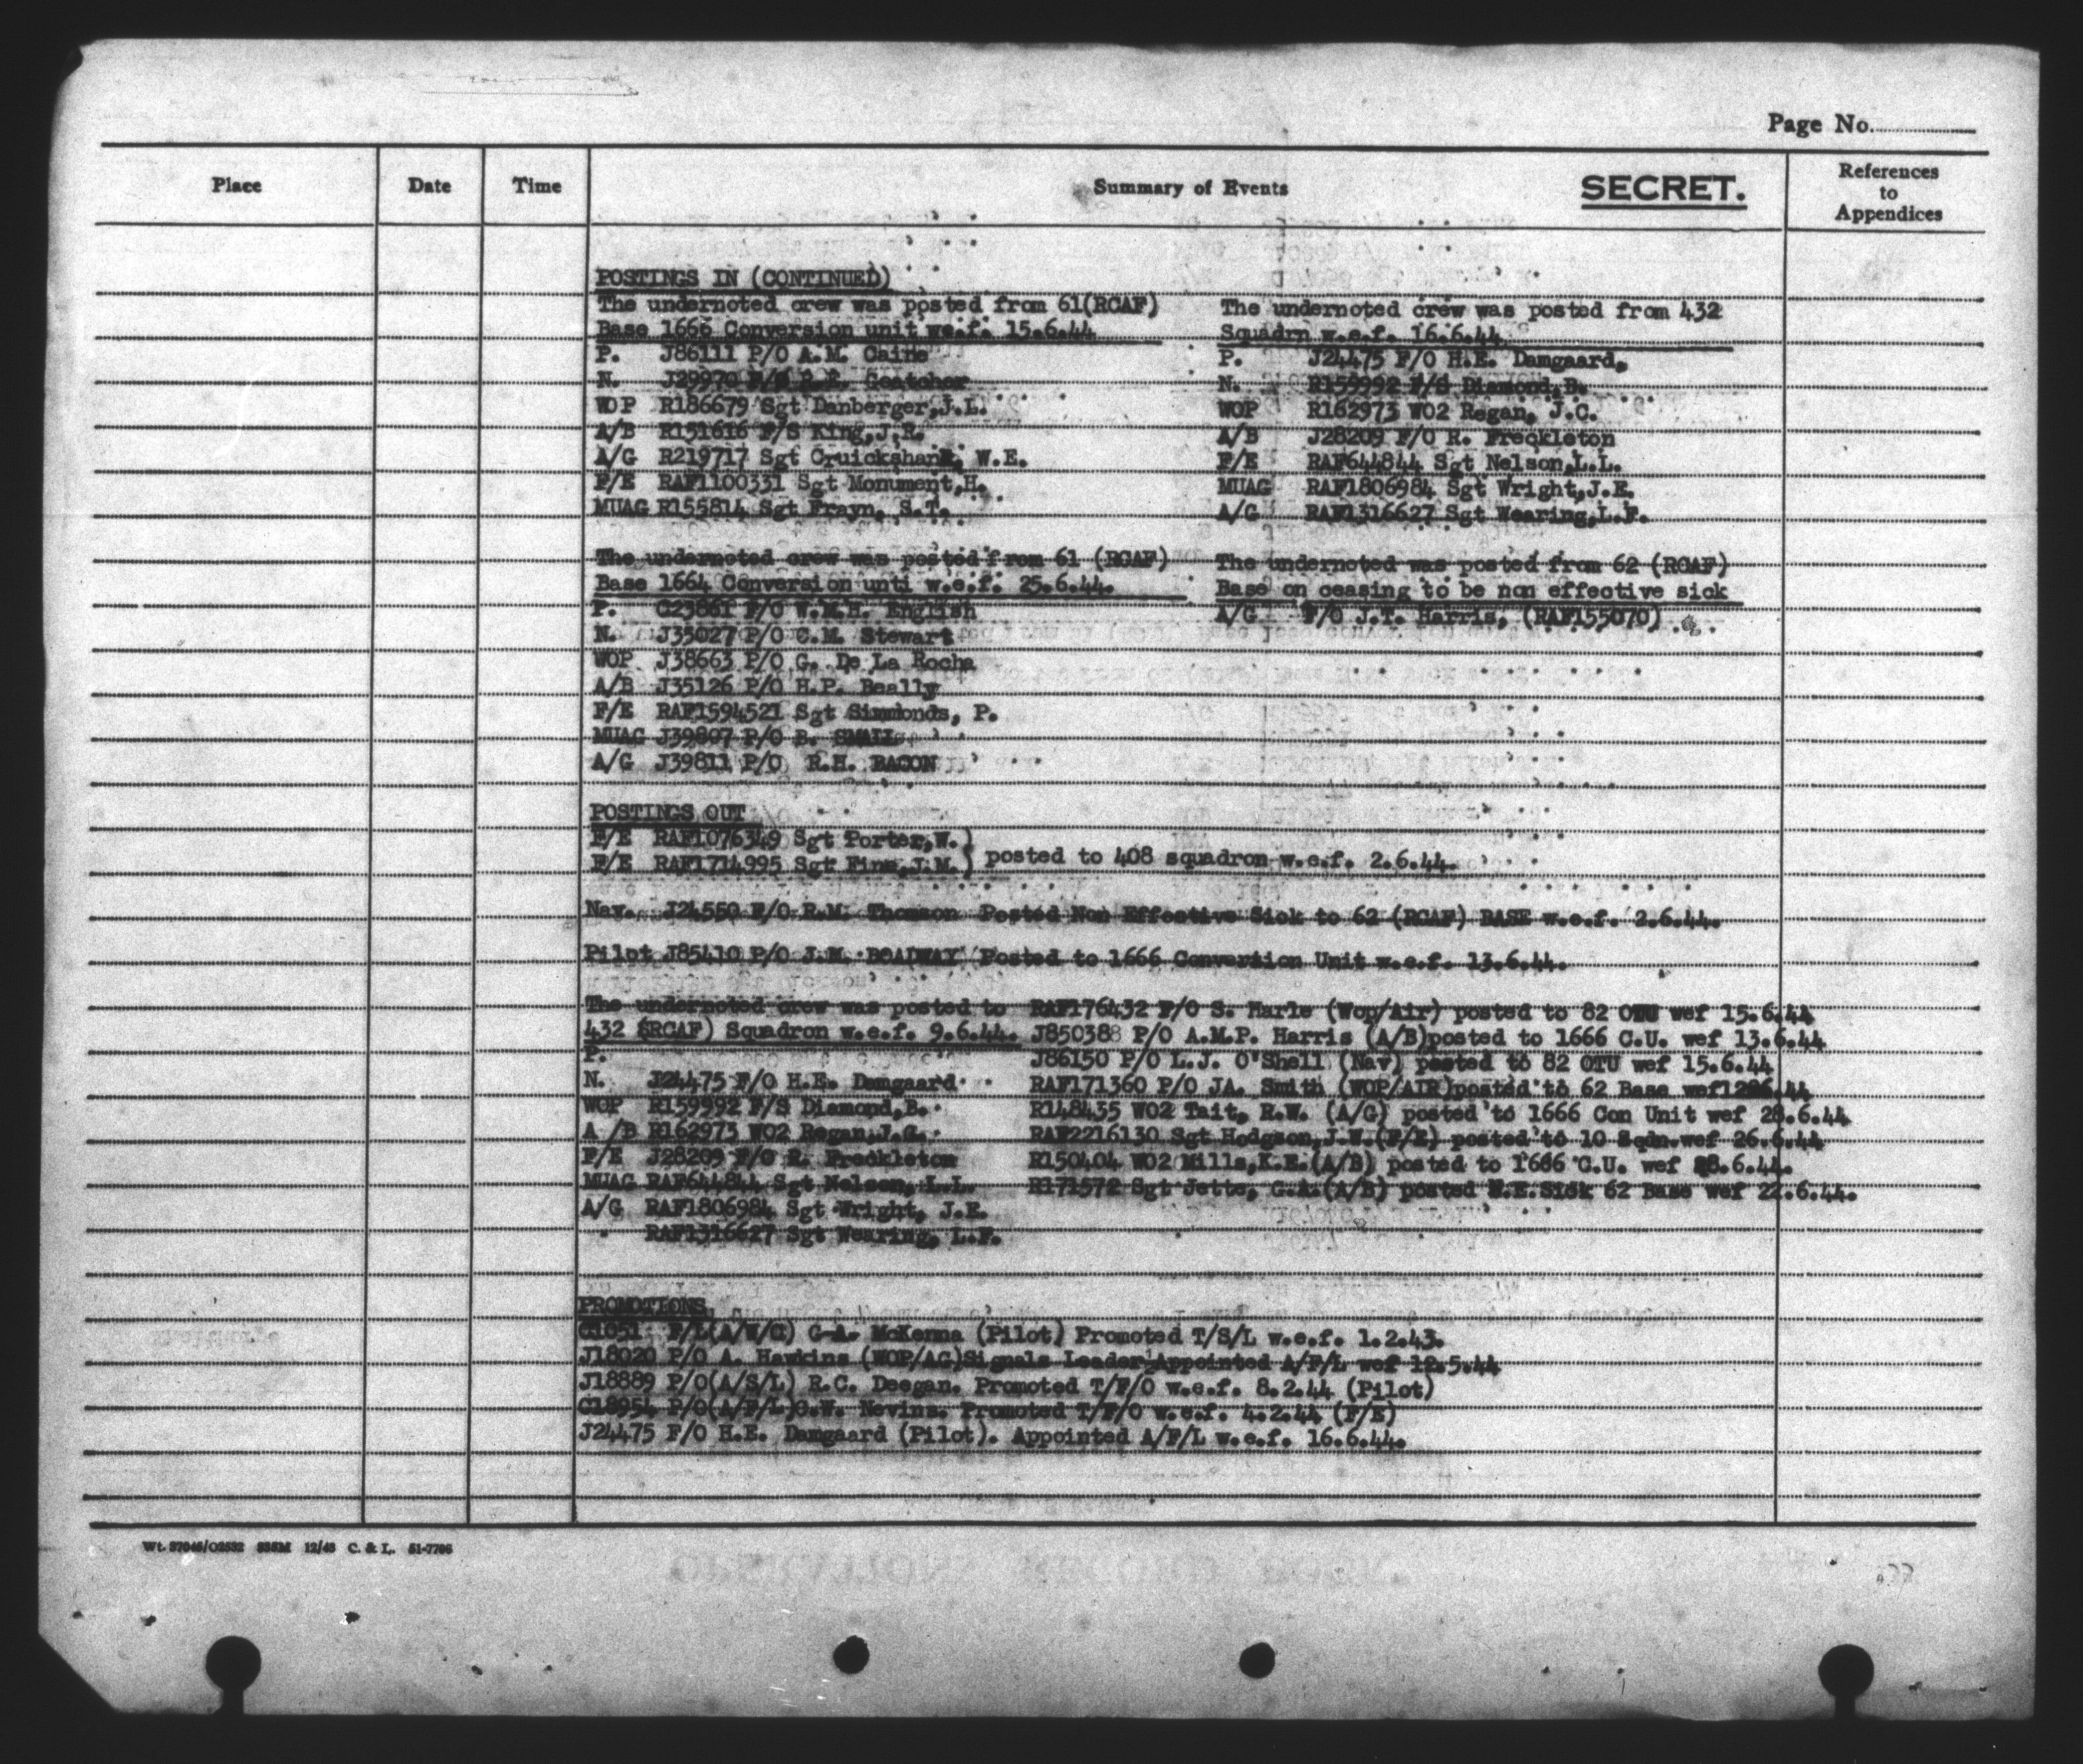 Page No.
Place Date Time Summary of Events SECRET. References to Appendices
POSTINGS IN (CONTINUED)
The undernoted crew was posted from 61(RCAF)
Base 1666 Conversion unit we.f. 15.6.44
P. J86111 P/O A.M. Caine
N. J29970 Goatcher
WOP R186679 Sgt Danberger,J.L.
A/B R151616 F/S King,J.R.
A/G R219717 Sgt Cruickshank, W.E.
F/E RAF1100331 Sgt Monument,H.
MUAG R155814 Sgt Frayn, S.T.
The undernoted crew was posted from 432
Squadrn w.e.f. 16.6.44
P. J24475 F/O H.E. Damgaard,
N. R159992 F/S Diamond,B.
WOP R162973 WO2 Regan, J.C.
A/B J28209 F/O R. Freckleton
F/E RAF644844 Sgt Nelson,L.L.
MUAG RAF1806984 Sgt Wright,J.E.
A/G RAF1316627 Sgt Wearing,L.F.
The undernoted crew was posted from 61 (RCAF)
Base 1664 Conversion unti w.e.f. 25.6.44.
P. C23861 F/O W.M.H. English
N. J35027 P/O C.M. Stewart
WOP J38663 P/O G. De La Rocha
A/B J35126 P/O H.P. Beally
F/E RAF1594521 Sgt Simmonds, P.
MUAG J39807 P/O B. SMALL
A/G J39811 P/O R.H. BACON
The undernoted was posted from 62 (RCAF)
Base on ceasing to be non effective sick
A/G F/O J.T. Harris, (RAF155070)
POSTINGS OUT
F/E RAF1076349 Sgt Porter,W. )
F/E RAF1714995 Sgt Fine,J.M. ) posted to 408 squadron w.e.f. 2.6.44.
Nav. J24550 F/O R.M. Thomson Posted Non Effective Sick to 62 (RCAF) BASE w.e.f. 2.6.44.
Pilot J85410 P/O J.M. BOADWAY Posted to 1666 Convertion Unit w.e.f. 13.6.44.
The undernoted crew was posted to
432 (RCAF) Squadron w.e.f. 9.6.44.
P.
N. J24475 F/O H.E. Damgaard
WOP R159992 F/S Diamond,B.
A /B R162973 WO2 Regan,J.C.
F/E J28209 F/O R. Freckleton
MUAG RAF644844 Sgt Nelson, L.L.
A/G RAF1806984 Sgt Wright, J.E.
RAF1316627 Sgt Wearing, L.F.
RAF176432 F/O S. Harle (Wop/Air) posted to 82 OTU wef 15.6.44
J850388 P/O A.M.P. Harris (A/B)posted to 1666 C.U. wef 13.6.44
J86150 P/O L.J. O'Shell (Nav) posted to 82 OTU wef 15.6.44
RAF171360 P/O JA. Smith (WOP/AIR)posted to 62 Base wef1286.44
R148435 WO2 Tait, R.W. (A/G) posted to 1666 Con Unit wef 28.6.44
RAF2216130 Sgt Hodgson,J.W.(F/E) posted to 10 Sqdn.wef 26.6.44
R150404 WO2 Mills,K.E.(A/B) posted to 1666 C.U. wef 28.6.44.
R171572 Sgt Jette, G.A.(A/B) posted N.E.Sick 62 Base wef 22.6.44.
PROMOTIONS
C1051 F/L(A/W/C) G A. McKenna (Pilot) Promoted T/S/L w.e.f. 1.2.43.
J18020 P/O A. Hawkins (WOP/AG)Signals Leader Appointed A/F/L wef 12.5.44
J18889 P/O(A/S/L) R.C. Deegan. Promoted T/F/O w.e.f. 8.2.44 (Pilot)
C18954 P/O(A/F/L)G.W. Nevins. Promoted T/F/O w.e.f. 4.2.44 (F/E)
J24475 F/O H.E. Damgaard (Pilot). Appointed A/F/L w.e.f. 16.6.44.
Wt. 37045/O2532 535M 12/43 C. & L. 51-7706